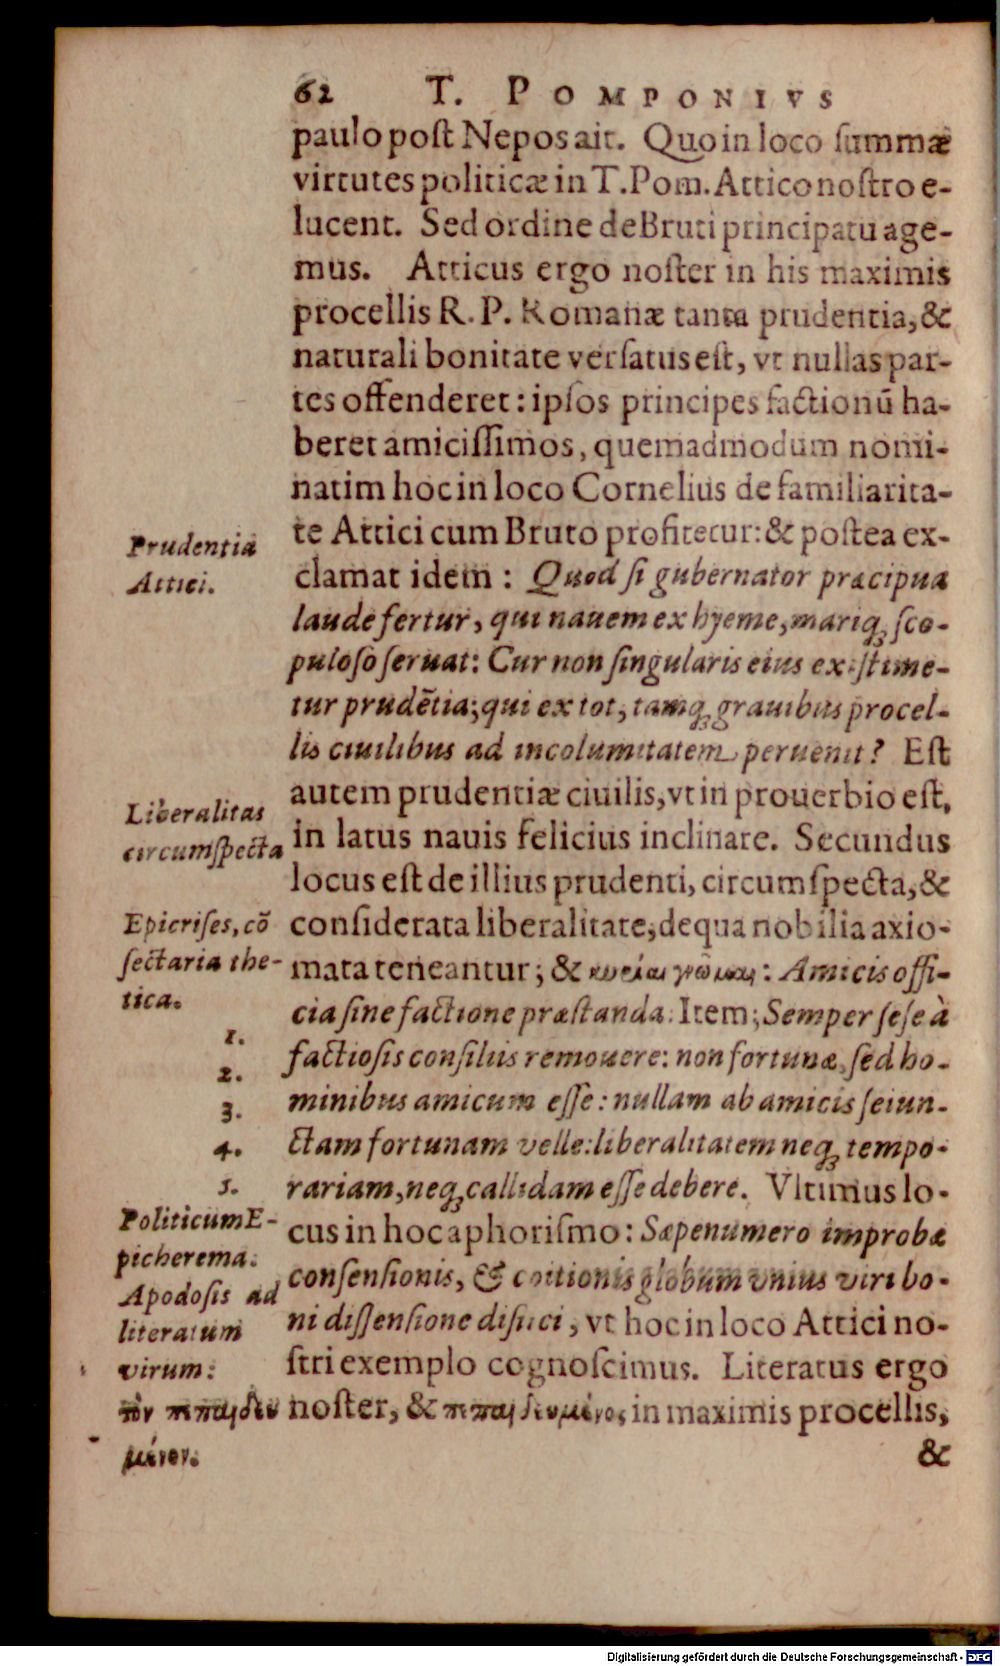 62 T. POMPONIVS
paulo post Nepos ait. Quo in loco summæ
virtutes politicæ in T. Pom. Attico nostro e-
lucent. Sed ordine de Bruti principatu age-
mus. Atticus ergo noster in his maximis
procellis R. P. Romanæ tanta prudentia, &
naturali bonitate versatus est, vt nullas par-
tes offenderet: ipsos principes factionū ha-
beret amicissimos, quemadmodum nomi-
natim hoc in loco Cornelius de familiarita-
te Attici cum Bruto profitetur: & postea ex-
clamat idem: Quod si gubernator præcipua
laude fertur, qui nauem ex hyeme, mariq; sco-
puloso seruat: Cur non singularis eius existime-
tur prudētia; qui ex tot, tamq; grauibus procel-
lis ciuilibus ad incolumitatem peruenit? Est
autem prudentiæ ciuilis, vt in prouerbio est,
in latus nauis felicius inclinare. Secundus
locus est de illius prudenti, circumspecta, &
considerata liberalitate, de qua nobilia axio-
mata teneantur; & κυρίαι γνῶμαι: Amicis offi-
cia sine factione præstanda. Item; Semper sese à
factiosis consiliis remouere: non fortunæ, sed ho-
minibus amicum esse: nullam ab amicis seiun-
ctam fortunam velle: liberalitatem neq; tempo-
rariam, neq; callidam esse debere. Vltimus lo-
cus in hoc aphorismo: Sæpenumero improbæ
consensionis, & coitionis globum vnius viri bo-
ni dissensione disiici, vt hoc in loco Attici no-
stri exemplo cognoscimus. Literatus ergo
noster, & πεπαιδευμένος in maximis procellis,
&
Prudentia
Attici.
Liberalitas
circumspecta
Epicrises, cō
sectaria the-
tica.
1.
2.
3.
4.
5.
Politicum E-
picherema.
Apodosis ad
literatum
virum:
τὸν πεπαιδευ
μένον.
Digitalisierung gefördert durch die Deutsche Forschungsgemeinschaft - DFG